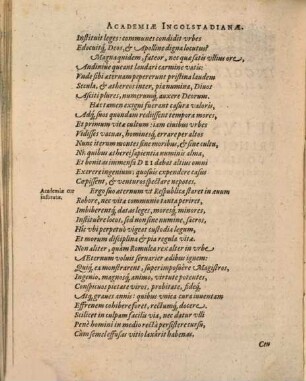 ACADEMIÆ INGOLSTADIANÆ.
Instituit leges: communes condidit vrbes
Edocuitq́; Deos, & Apolline digna locutus
Magna quidem, fateor, nec qua satis vllius ore
Audirine queant laudari carmine vatis:
Vnde sibi æternum peperunt pristina laudem
Secula, & æthereos inter, pia numina, Diuos
Asciti plures, numerumq́; auxere Deorum.
Hæc tamen exiguo fuerant casura valoris,
Adq́; suos quondam redissent tempora mores,
Et primum vitæ cultum: iam ciuibus vrbes
Vidisses vacuas, hominesq́; errare per altos
Nunc iterum montes sine moribus, & sine cultu,
Ni quibus ætherei sapientia numinis alma,
Et bonitas immensi DEI dabat altius omni
Exerere ingenium: quo suis expendere casus
Cœpissent, & venturo spectare nepotes.
Academia constituta.
Ergo suo æternum vt Respublica staret in æuum
Robore, nec vitæ communio tanta periret,
Imbiberentq́; datas leges, moresq́; minores,
Instituêre locos, sed non sine numine, sacros,
Hic vbi perpetuò vigeat custodia legum,
Et morum disciplina & pia regula vitæ.
Non aliter, quàm Romulea rex alter in vrbe
Æternum voluit seruarier ædibus ignem:
Quiq́; ea monstrarent, superimposuêre Magistros,
Ingenio, magnosq́; animo, virtute potentes,
Conspicuos pietate viros, probitate, fideq́;
Atq́; graues annis: quibus vnica cura iuuentam
Effrenem cohibere foret, rectumq́; docere.
Scilicet in culpam facilis via, nec datur vlli
Penè homini in medio rectà persistere cursu,
Cùm semel effusas vitiis laxârit habenas.
Cùm